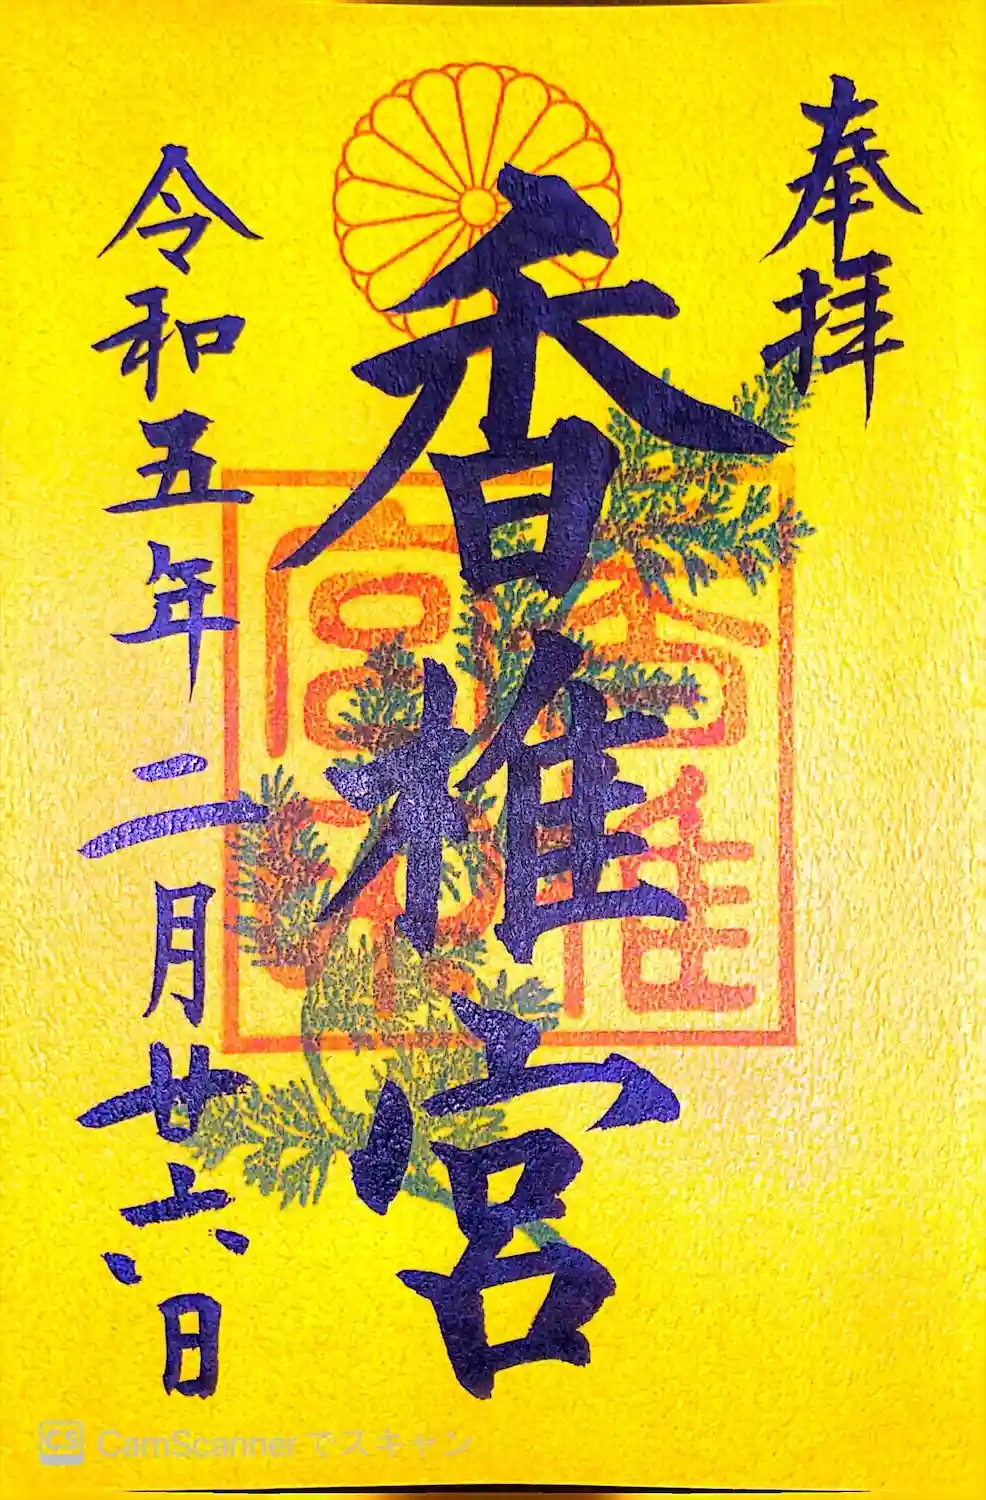 奉拝
香椎宮
令和五年二月廿六日
香椎宮印
CS CamScannerでスキャン